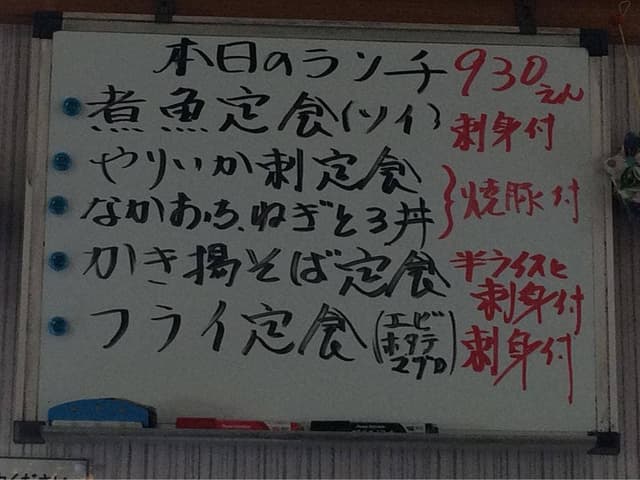 本日のランチ 930えん
煮魚定食(ソイ) 刺身付
やりいか刺定食
なかおち、ねぎとろ丼 焼豚付
かき揚そば定食 半ライスと刺身付
フライ定食(エビ ホタテ マグロ) 刺身付
ください